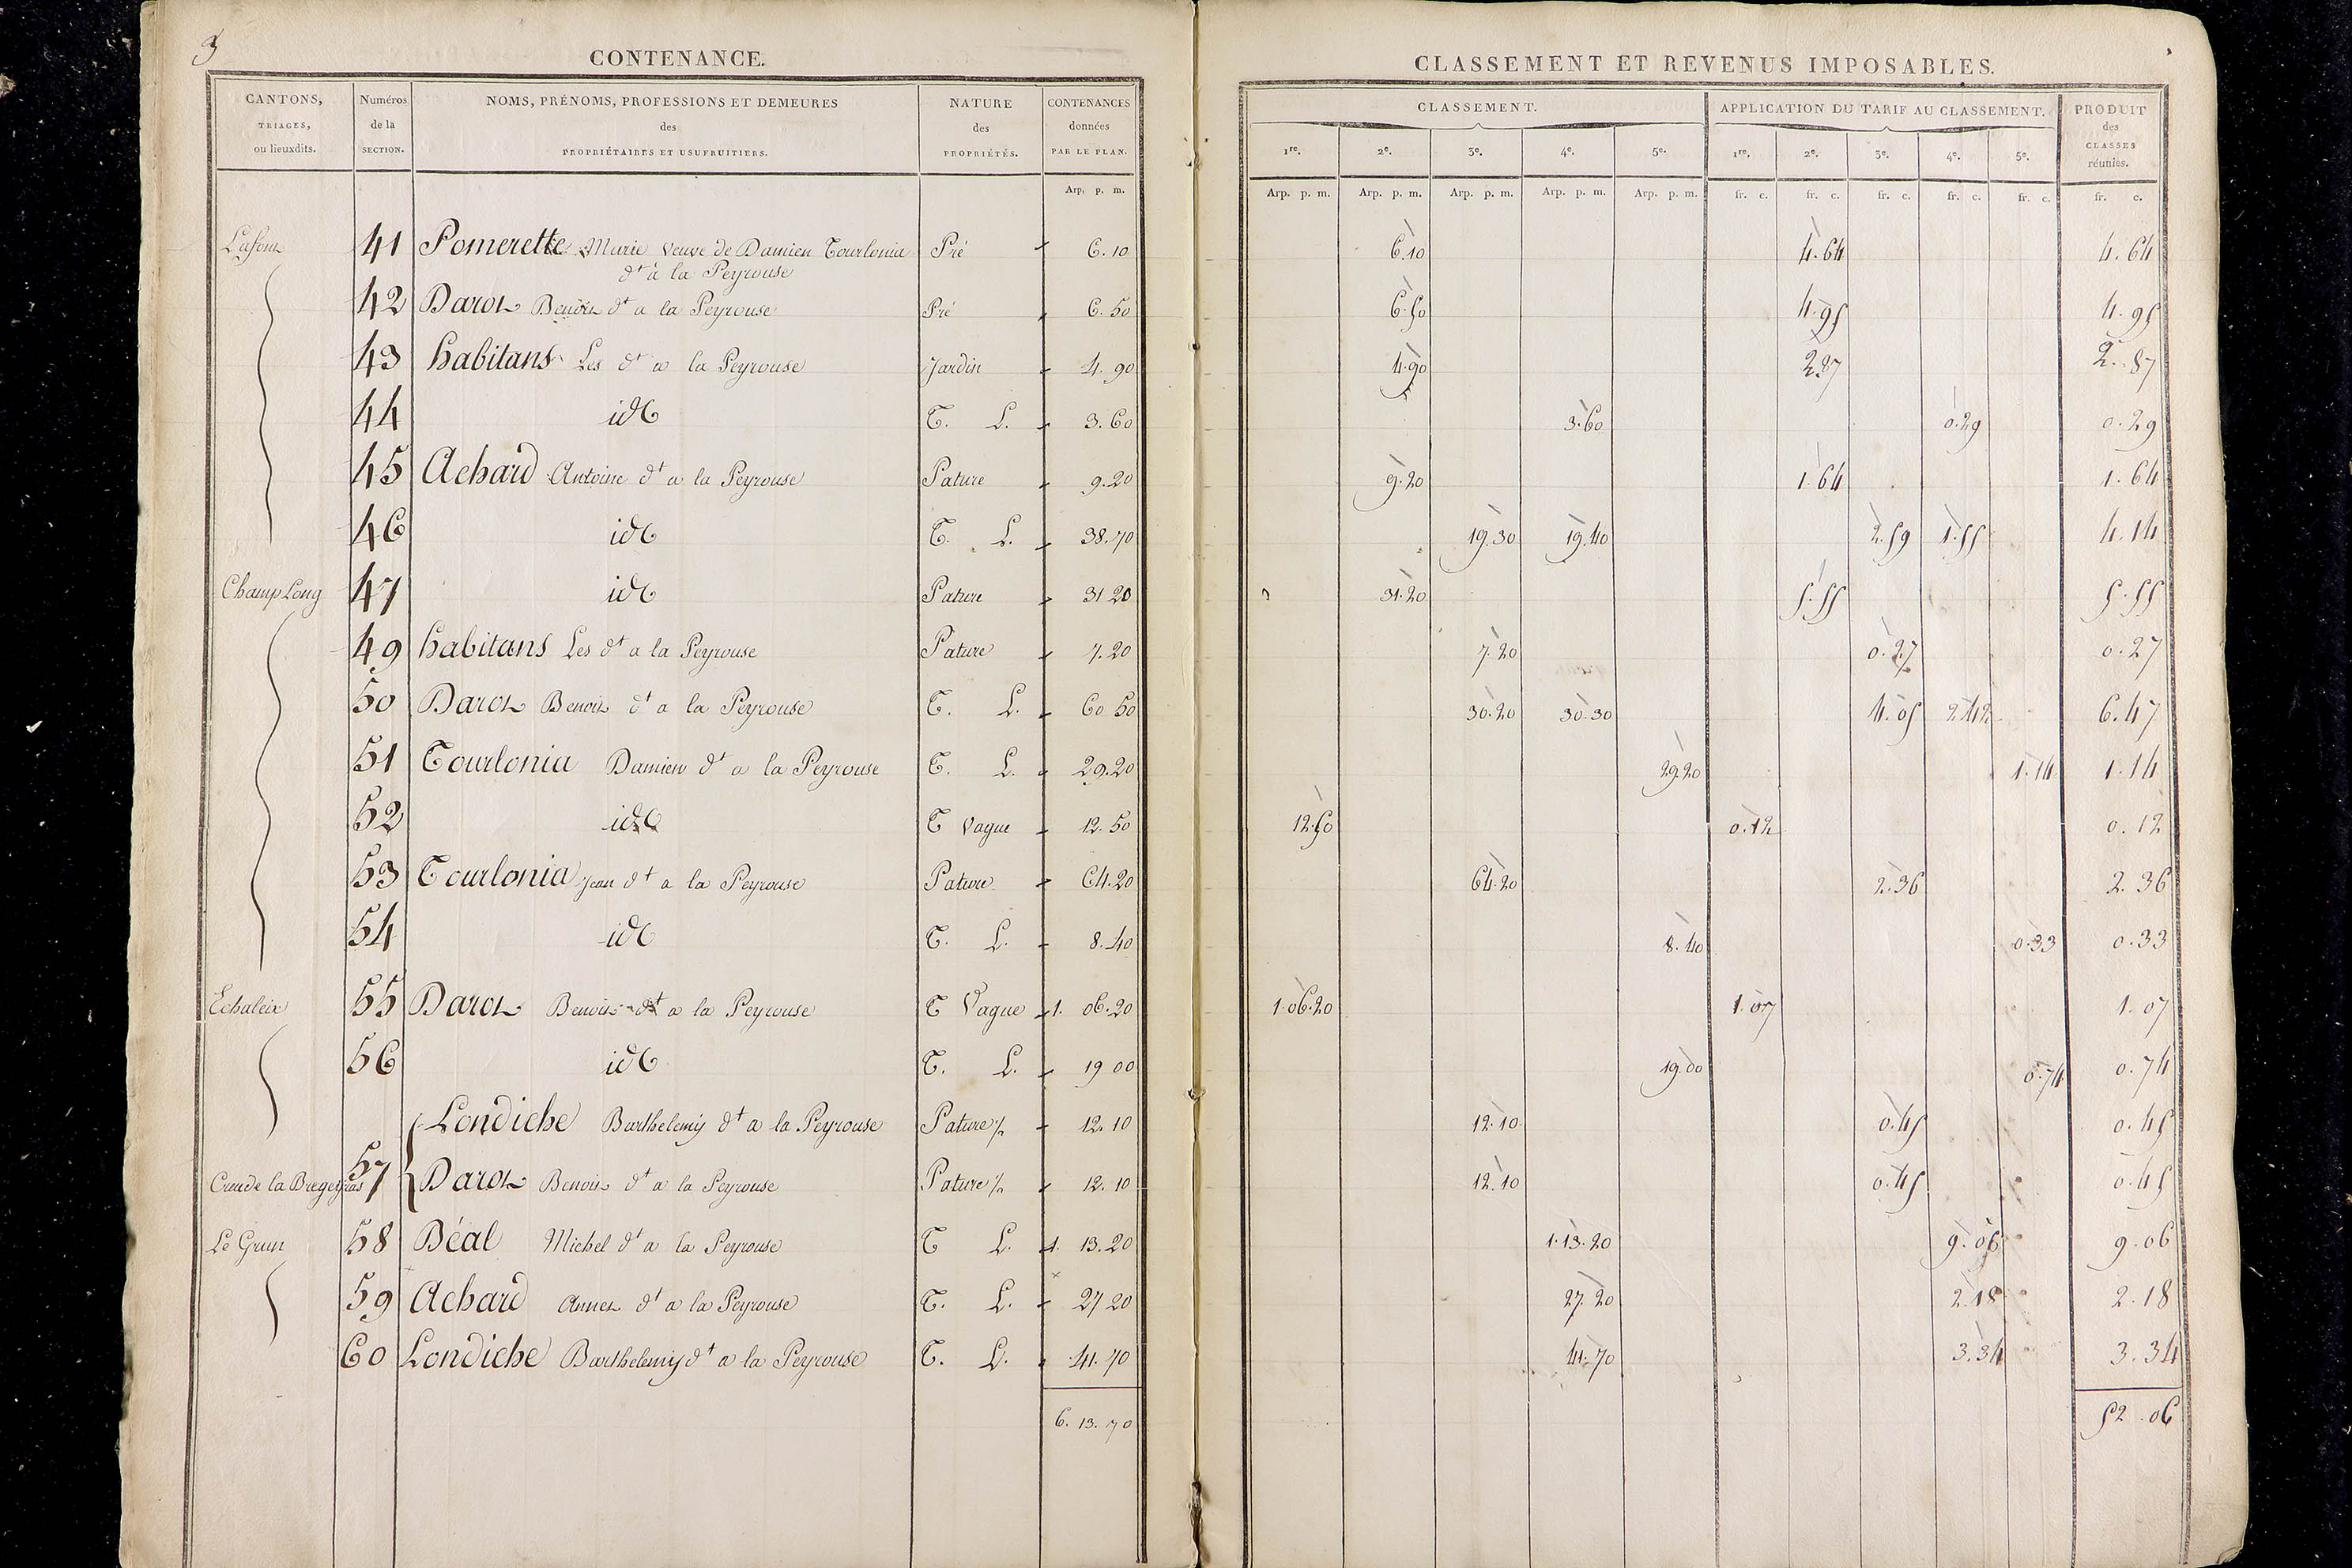 3
CONTENANCE.
CANTONS, TRIAGES, ou lieuxdits. | Numéros de la SECTION. | NOMS, PRÉNOMS, PROFESSIONS ET DEMEURES des PROPRIÉTAIRES ET USUFRUITIERS. | NATURE des PROPRIÉTÉS. | CONTENANCES données PAR LE PLAN.
Arp. p. m.
41 Pomerette Marie veuve de Damien Tourlonia Pré 6.10
dt à la Peyrouse
42 Darot Benoit dt a la Peyrouse Pré 6.50
43 habitans Les dt a la Peyrouse Jardin 4.90
44 id T. L. 3.60
45 Achard Antoine dt a la Peyrouse Pature 9.20
46 id T. L. 38.70
Champ Long 47 id Pature 31 20
49 habitans Les dt a la Peyrouse Pature 7.20
50 Darot Benoit dt a la Peyrouse T. L. 60 50
51 Tourlonia Damien dt a la Peyrouse T. L. 29.20
52 id T Vague 12.50
53 Tourlonia Jean dt a la Peyrouse Pature 64.20
54 id T. L. 8.40
Echaleix 55 Darot Benoit dt a la Peyrouse T Vague 1. 06.20
56 id T. L. 19 00
Londiche Barthelemy dt a la Peyrouse Pature 12.10
57 Darot Benoit dt a la Peyrouse Pature 12.10
Le Grun 58 Béal Michel dt a la Peyrouse T L. 1. 13.20
59 Achard Annet dt a la Peyrouse T. L. 27 20
60 Londiche Barthelemy dt a la Peyrouse T. L. 41.70
6. 13. 70
CLASSEMENT ET REVENUS IMPOSABLES.
CLASSEMENT. | APPLICATION DU TARIF AU CLASSEMENT. | PRODUIT des CLASSES réunies.
1re. 2e. 3e. 4e. 5e. 1re. 2e. 3e. 4e. 5e.
Arp. p. m. Arp. p. m. Arp. p. m. Arp. p. m. Arp. p. m. fr. c. fr. c. fr. c. fr. c. fr. c. fr. c.
6.10 4.64 4.64
6.50 4.95 4.95
4.90 2.87 2.87
3.60 0.29 0.29
9.20 1.64 1.64
19.30 19.40 2.59 1.55 4.14
31.20 5.55 5.55
7.20 0.27 0.27
30.20 30.30 4.05 2.42 6.47
29.20 1.14 1.14
12.50 0.12 0.12
64.20 2.36 2.36
8.40 0.33 0.33
1.06.20 1.07 1.07
19.00 0.74 0.74
12.10 0.45 0.45
12.10 0.45 0.45
1.13.20 9.06 9.06
27.20 2.18 2.18
41.70 3.34 3.34
52.06